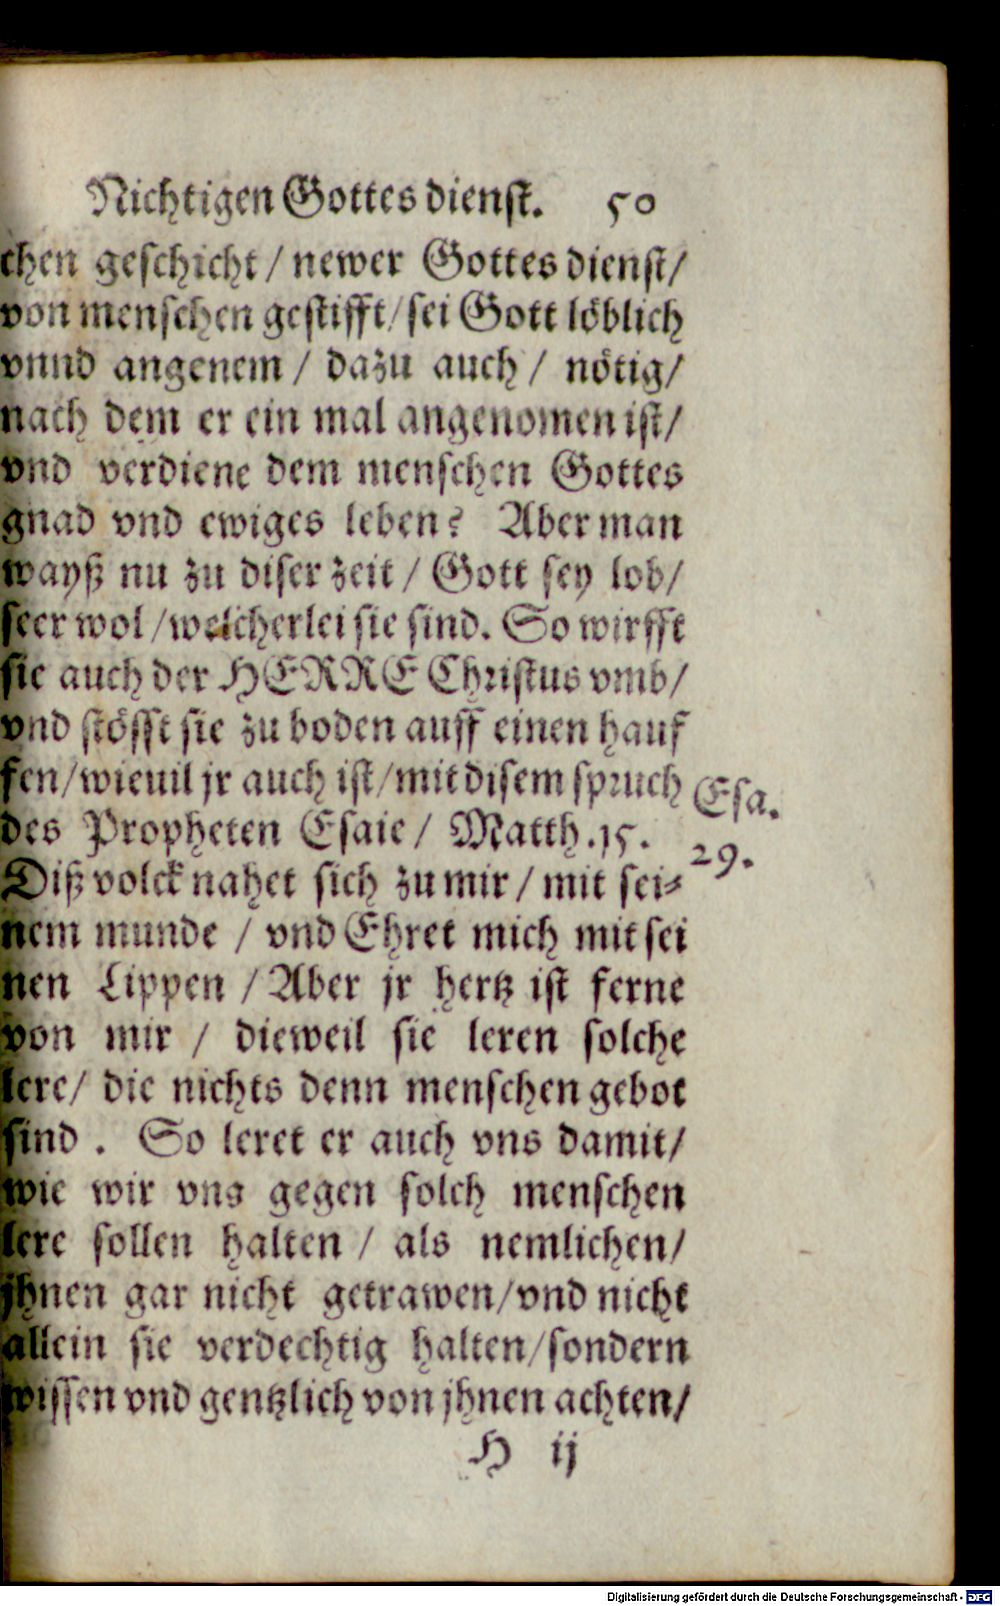 Nichtigen Gottes dienst. 50
chen geschicht / newer Gottes dienst /
von menschen gestifft / sei Gott löblich
vnnd angenem / dazu auch / nötig /
nach dem er ein mal angenomen ist /
vnd verdiene dem menschen Gottes
gnad vnd ewiges leben? Aber man
wayß nu zu diser zeit / Gott sey lob /
seer wol / welcherlei sie sind. So wirfft
sie auch der HERRE Christus vmb /
vnd stösst sie zu boden auff einen hauf
fen / wieuil jr auch ist / mit disem spruch
des Propheten Esaie / Matth. 15.
Esa.
29.
Diß volck nahet sich zu mir / mit sei⸗
nem munde / vnd Ehret mich mit sei
nen Lippen / Aber jr hertz ist ferne
von mir / dieweil sie leren solche
lere / die nichts denn menschen gebot
sind . So leret er auch vns damit /
wie wir vns gegen solch menschen
lere sollen halten / als nemlichen /
jhnen gar nicht getrawen / vnd nicht
allein sie verdechtig halten / sondern
wissen vnd gentzlich von jhnen achten /
H ij
Digitalisierung gefördert durch die Deutsche Forschungsgemeinschaft - DFG